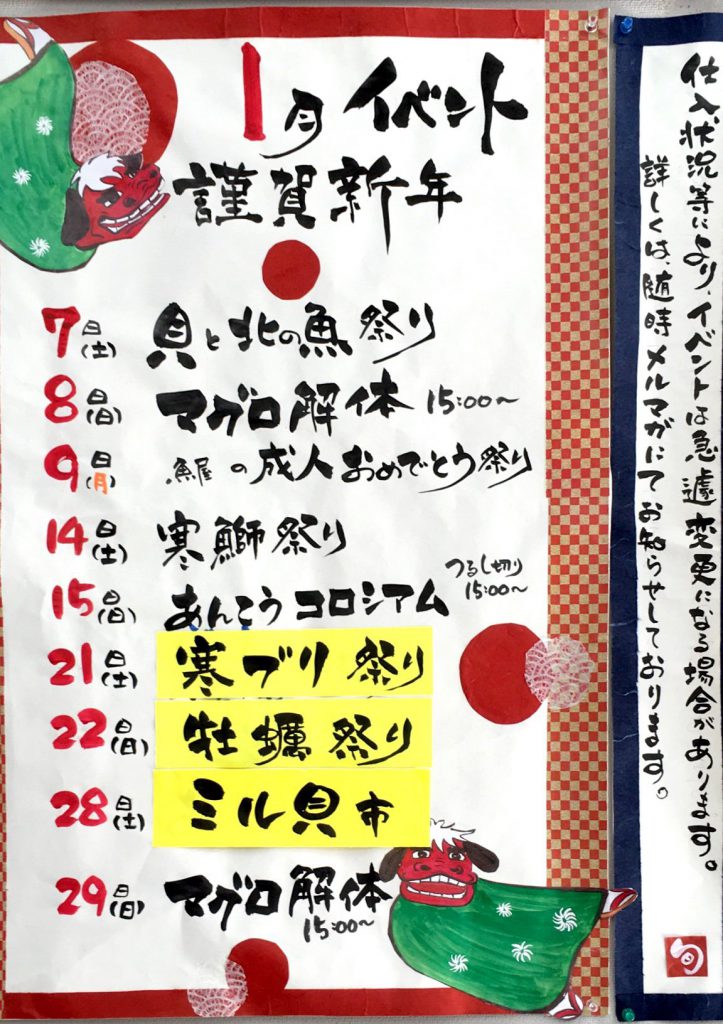 1月 イベント
謹賀新年
7日(土) 貝と北の魚祭り
8日(日) マグロ解体 15:00〜
9日(月) 魚屋の成人おめでとう祭り
14日(土) 寒鰤祭り
15日(日) あんこうコロシアム つるし切り 15:00〜
21日(土) 寒ブリ祭り
22日(日) 牡蠣祭り
28日(土) ミル貝市
29日(日) マグロ解体 15:00〜
仕入状況等により、イベントは急遽変更になる場合があります。
詳しくは、随時メルマガにてお知らせしております。
旬